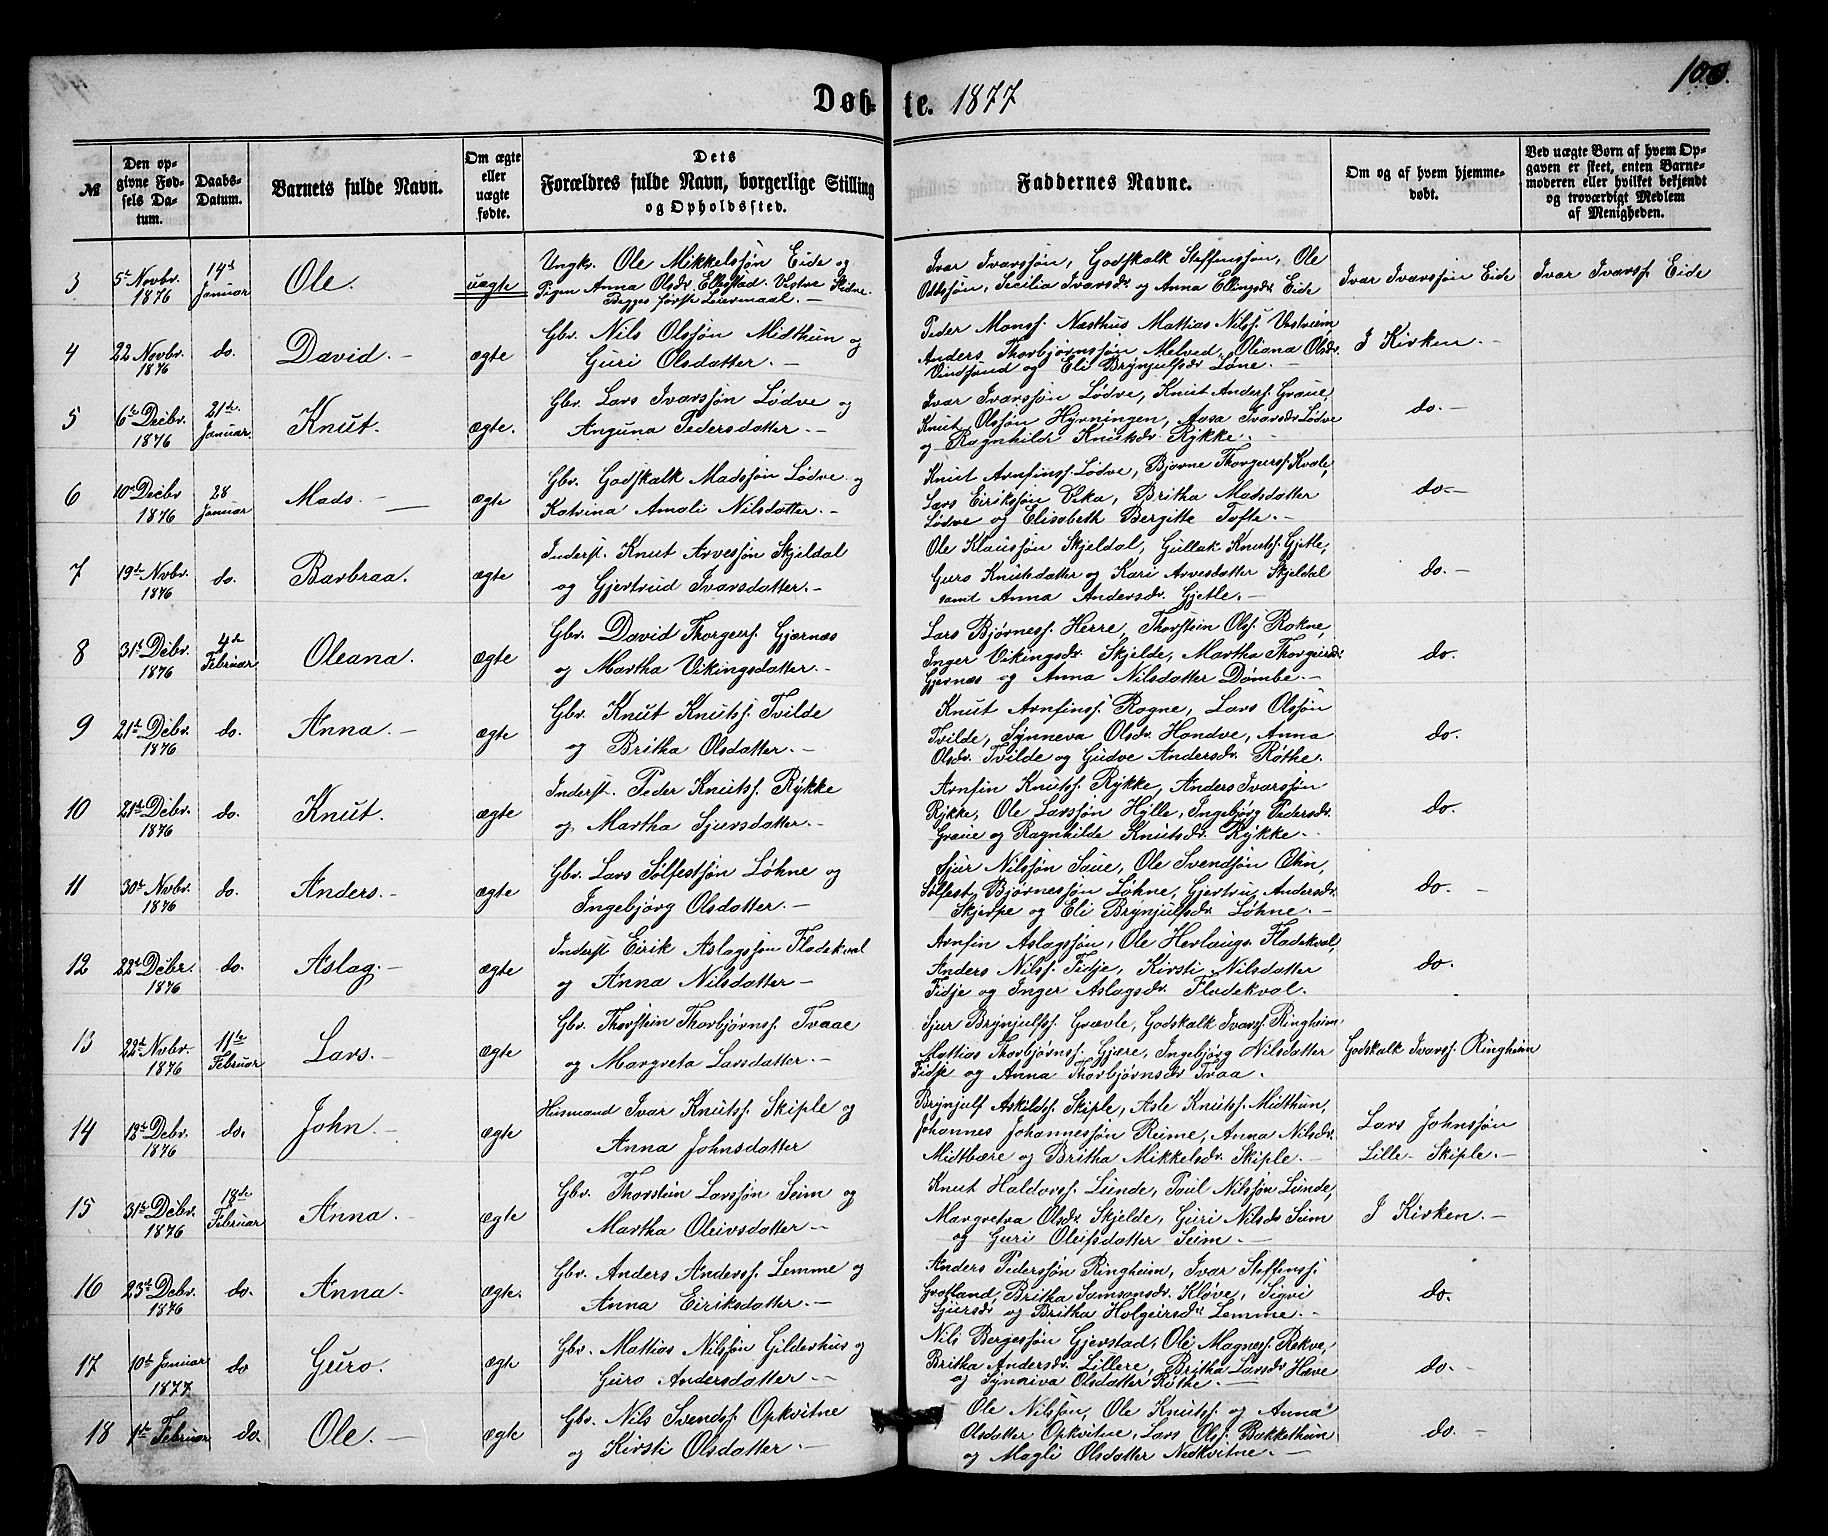 100.
Døbte. 1877
№
Den opgivne Fødsels Datum.
Daabs-Datum.
Barnets fulde Navn.
Om ægte eller uægte fødte.
Dets Forældres fulde Navn, borgerlige Stilling og Opholdssted.
Faddernes Navne.
Om og af hvem hjemmedøbt.
Ved uægte Børn af hvem Opgaven er skeet, enten Barnemoderen eller hvilket bekjendt og troværdigt Medlem af Menigheden.
3 5te Novbr. 1876 14de Januar Ole. uægte
Ungk. Ole Mikkelssøn Eide og
Pigen Anna Olsdr. Vestre
Begges første Leiermaal.
Ivar Ivarssøn, Godskalk Steffenssøn, Ole
Oddssøn, Secilia Ivarsdr. og Anna Ellingsdr. Eide
Ivar Ivarssøn Eide
Ivar Ivarss. Eide
4 22 Novbr. 1876 do. David. ægte
Gbr. Nils Olssøn Midthun og
Guri Olsdatter.
Peder Monss. Næsthus Mattias Nilss. Vestreim
Anders Thorbjørnssøn Melved, Oliana Olsdr.
Vindsand og Eli Brynjulfsdr. Løne.
I Kirken.
5 6te Decbr. 1876 21de Januar. Knut. ægte.
Gbr. Lars Ivarssøn Lødve og
Anguna Pedersdatter.
Ivar Ivarssøn Lødve, Knut Anderss. Graue,
Knut Olssøn Hyrningen, Aasa Ivarsdr. Lødve
og Ragnhilde Knutsdr. Rykke.
do.
6 10de Decbr 1876 28 Januar Mads. ægte
Gbr. Godskalk Madssøn Lødve og
Katrina Amali Nilsdatter.
Knut Arnfinss. Lødve, Bjørne Thorgerss. Kvale,
Lars Eirikssøn Veka, Britha Madsdatter
Lødve og Elisabeth Bergitte Tofte.
do.
7 19de Novbr. 1876 do. Barbraa. ægte
Inderst. Knut Arvessøn Skjeldal
og Gjertrud Ivarsdatter.
Ole Klaussøn Skjeldal, Gullak Knutss. Gjetle,
Guro Knutsdatter og Kari Arvesdatter Skjeldal
samt Anna Andersdr. Gjetle.
do.
8 31de Decbr. 1876 4de Februar. Oleana. ægte
Gbr. David Thorgerss. Gjernæs
og Martha Vikingsdatter.
Lars Bjørness. Herre, Thorstein Olss. Rokne,
Inger Vikingsdr. Skjelde, Martha Thorgersdr.
Gjernæs og Anna Nilsdatter Dømbe.
do.
9 21de Decbr. 1876 do. Anna. ægte
Gbr. Knut Knutss. Tvilde
og Britha Olsdatter.
Knut Arnfinss. Rogne, Lars Olssøn
Tvilde, Synneva Olsdr. Hondve, Anna
Olsdr. Tvilde og Gudve Andersdr. Røthe.
do.
10 21de Decbr. 1876 do. Knut. ægte
Inderst. Peder Knutss. Rykke
og Martha Sjursdatter.
Arnfin Knutss. Rykke, Anders Ivarssøn
Rykke, Ole Larssøn Hylle, Ingebjørg Pedersdr.
Graue og Ragnhilde Knutsdr. Rykke.
do.
11 30te Novbr. 1876 do. Anders. ægte
Gbr. Lars Sølfestsøn Løhne og
Ingebjørg Olsdatter.
Sjur Nilssøn Saue, Ole Svendsøn Øhn,
Sølfest Bjørnessøn Løhne, Gjertru Andersdr.
Skjerpe og Eli Brynjulfsdr. Løhne.
do.
12 22de Decbr. 1876 do. Aslag. ægte
Inderst Eirik Aslagssøn Fladekval
og Anna Nilsdatter
Arnfin Aslagssøn, Ole Herlaugs. Fladekval,
Anders Nilss. Fidje, Kirsti Nilsdatter
Fidje og Inger Aslagsdr. Fladekval.
do.
13 22de Novbr. 1876 11te Februar Lars. ægte
Gbr. Thorstein Thorbjørnss. Tvaae
og Margreta Larsdatter.
Sjur Brynjulfss. Grævle, Godskalk Ivarss. Ringheim,
Mattias Thorbjørnss. Gjære, Ingebjørg Nilsdatter
Fidje og Anna Thorbjørnsdr. Tvaa.
Godskalk Ivarss. Ringheim
14 12te Decbr. 1876 do. John. ægte
Husmand Ivar Knutss. Skiple og
Anna Johnsdatter
Brynjulf Askildss. Skiple, Asle Knutss. Midthun,
Johannes Johannessøn Reime, Anna Nilsdr.
Midtbære og Britha Mikkelsdr. Skiple.
Lars Johnssøn
Lille-Skiple.
15 31te Decbr. 1876 18de Februar Anna. ægte
Gbr. Thorstein Larssøn Seim og
Martha Oleivsdatter.
Knut Haldorss. Lunde, Poul Nilssøn Lunde,
Margretva Olsdr. Skjelde, Guri Nilsdr Seim
og Guri Oleifsdatter Seim.
I Kirken.
16 23de Decbr. 1876 do. Anna. ægte.
Gbr. Anders Anderss. Lemme og
Anna Eiriksdatter.
Anders Pederssøn Ringheim, Ivar Steffenss.
Grotland, Britha Samsonsdr. Kløve, Sigvi
Sjursdr og Britha Holgeirsdr. Lemme.
do.
17 10de Januar 1877 do Guro. ægte
Gbr. Mattias Nilssøn Gilderhus og
Guro Andersdatter.
Nils Bergessøn Gjerstad, Ole Magness. Rekve,
Britha Andersdr. Lillere, Britha Larsdr. Hæve
og Synneva Olsdatter Røthe.
do.
18 1te Februar do. Ole. ægte
Gbr. Nils Svendss. Opkvitne
og Kirsti Olsdatter.
Ole Nilssøn, Ole Knutss. og Anna
Olsdatter Opkvitne, Lars Olss. Bakkethun
og Magli Olsdatter Nedkvitne.
do.